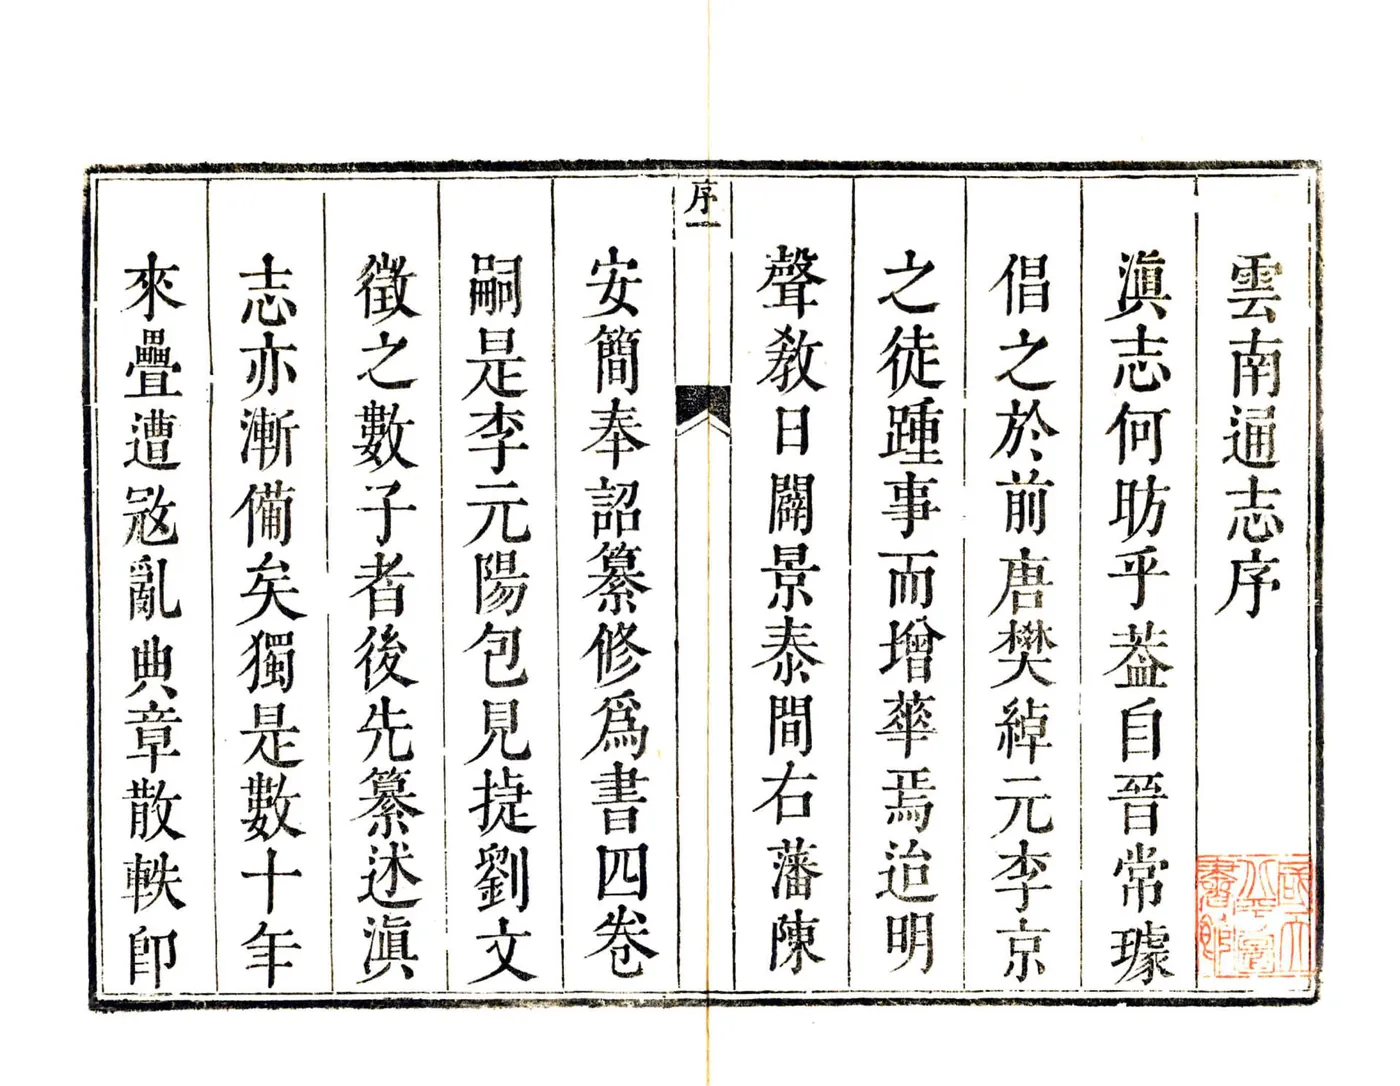 雲南通志序
滇志何昉乎葢自晉常璩
倡之於前唐樊綽元李京
之徒踵事而增華焉迨明
聲敎日闢景泰間右藩陳
序一
安簡奉詔纂修爲書四卷
嗣是李元陽包見捷劉文
徵之數子者後先纂述滇
志亦漸備矣獨是數十年
來疊遭寇亂典章散軼卽